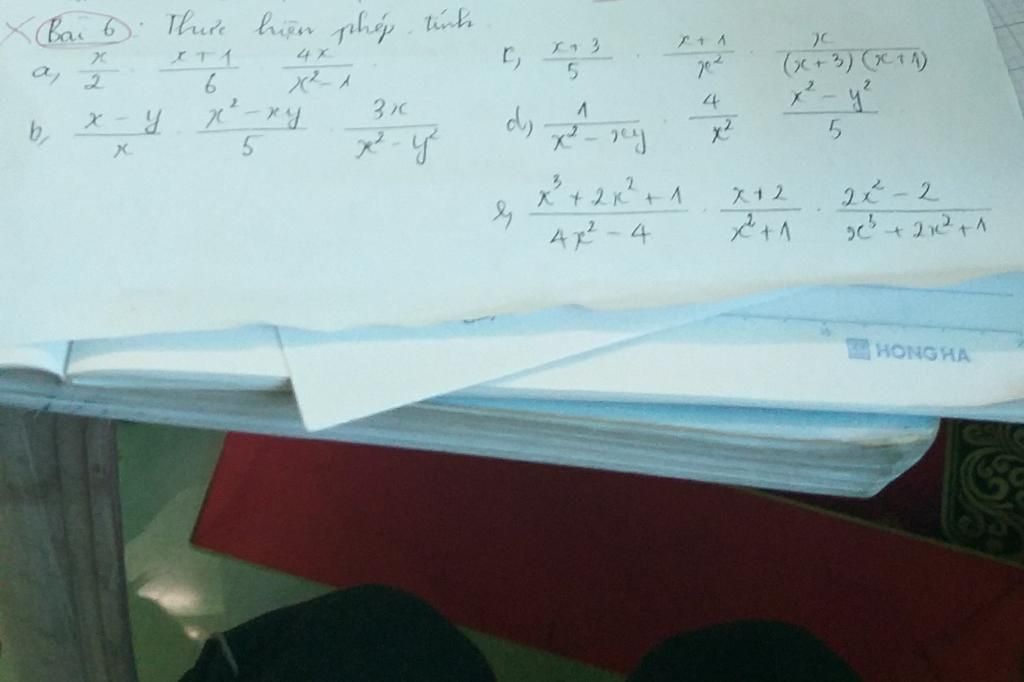 Bài 6: Thực hiện phép tính
a, x/2 · (x+1)/6 · 4x/(x²-1)
c, (x+3)/5 · (x+1)/x² · x/((x+3)(x+1))
b, (x-y)/x · (x²-xy)/5 · 3x/(x²-y²)
d, 1/(x²-xy) · 4/x² · (x²-y²)/5
e, (x³+2x²+1)/(4x²-4) · (x+2)/(x²+1) · (2x²-2)/(x³+2x²+1)
HONG HA